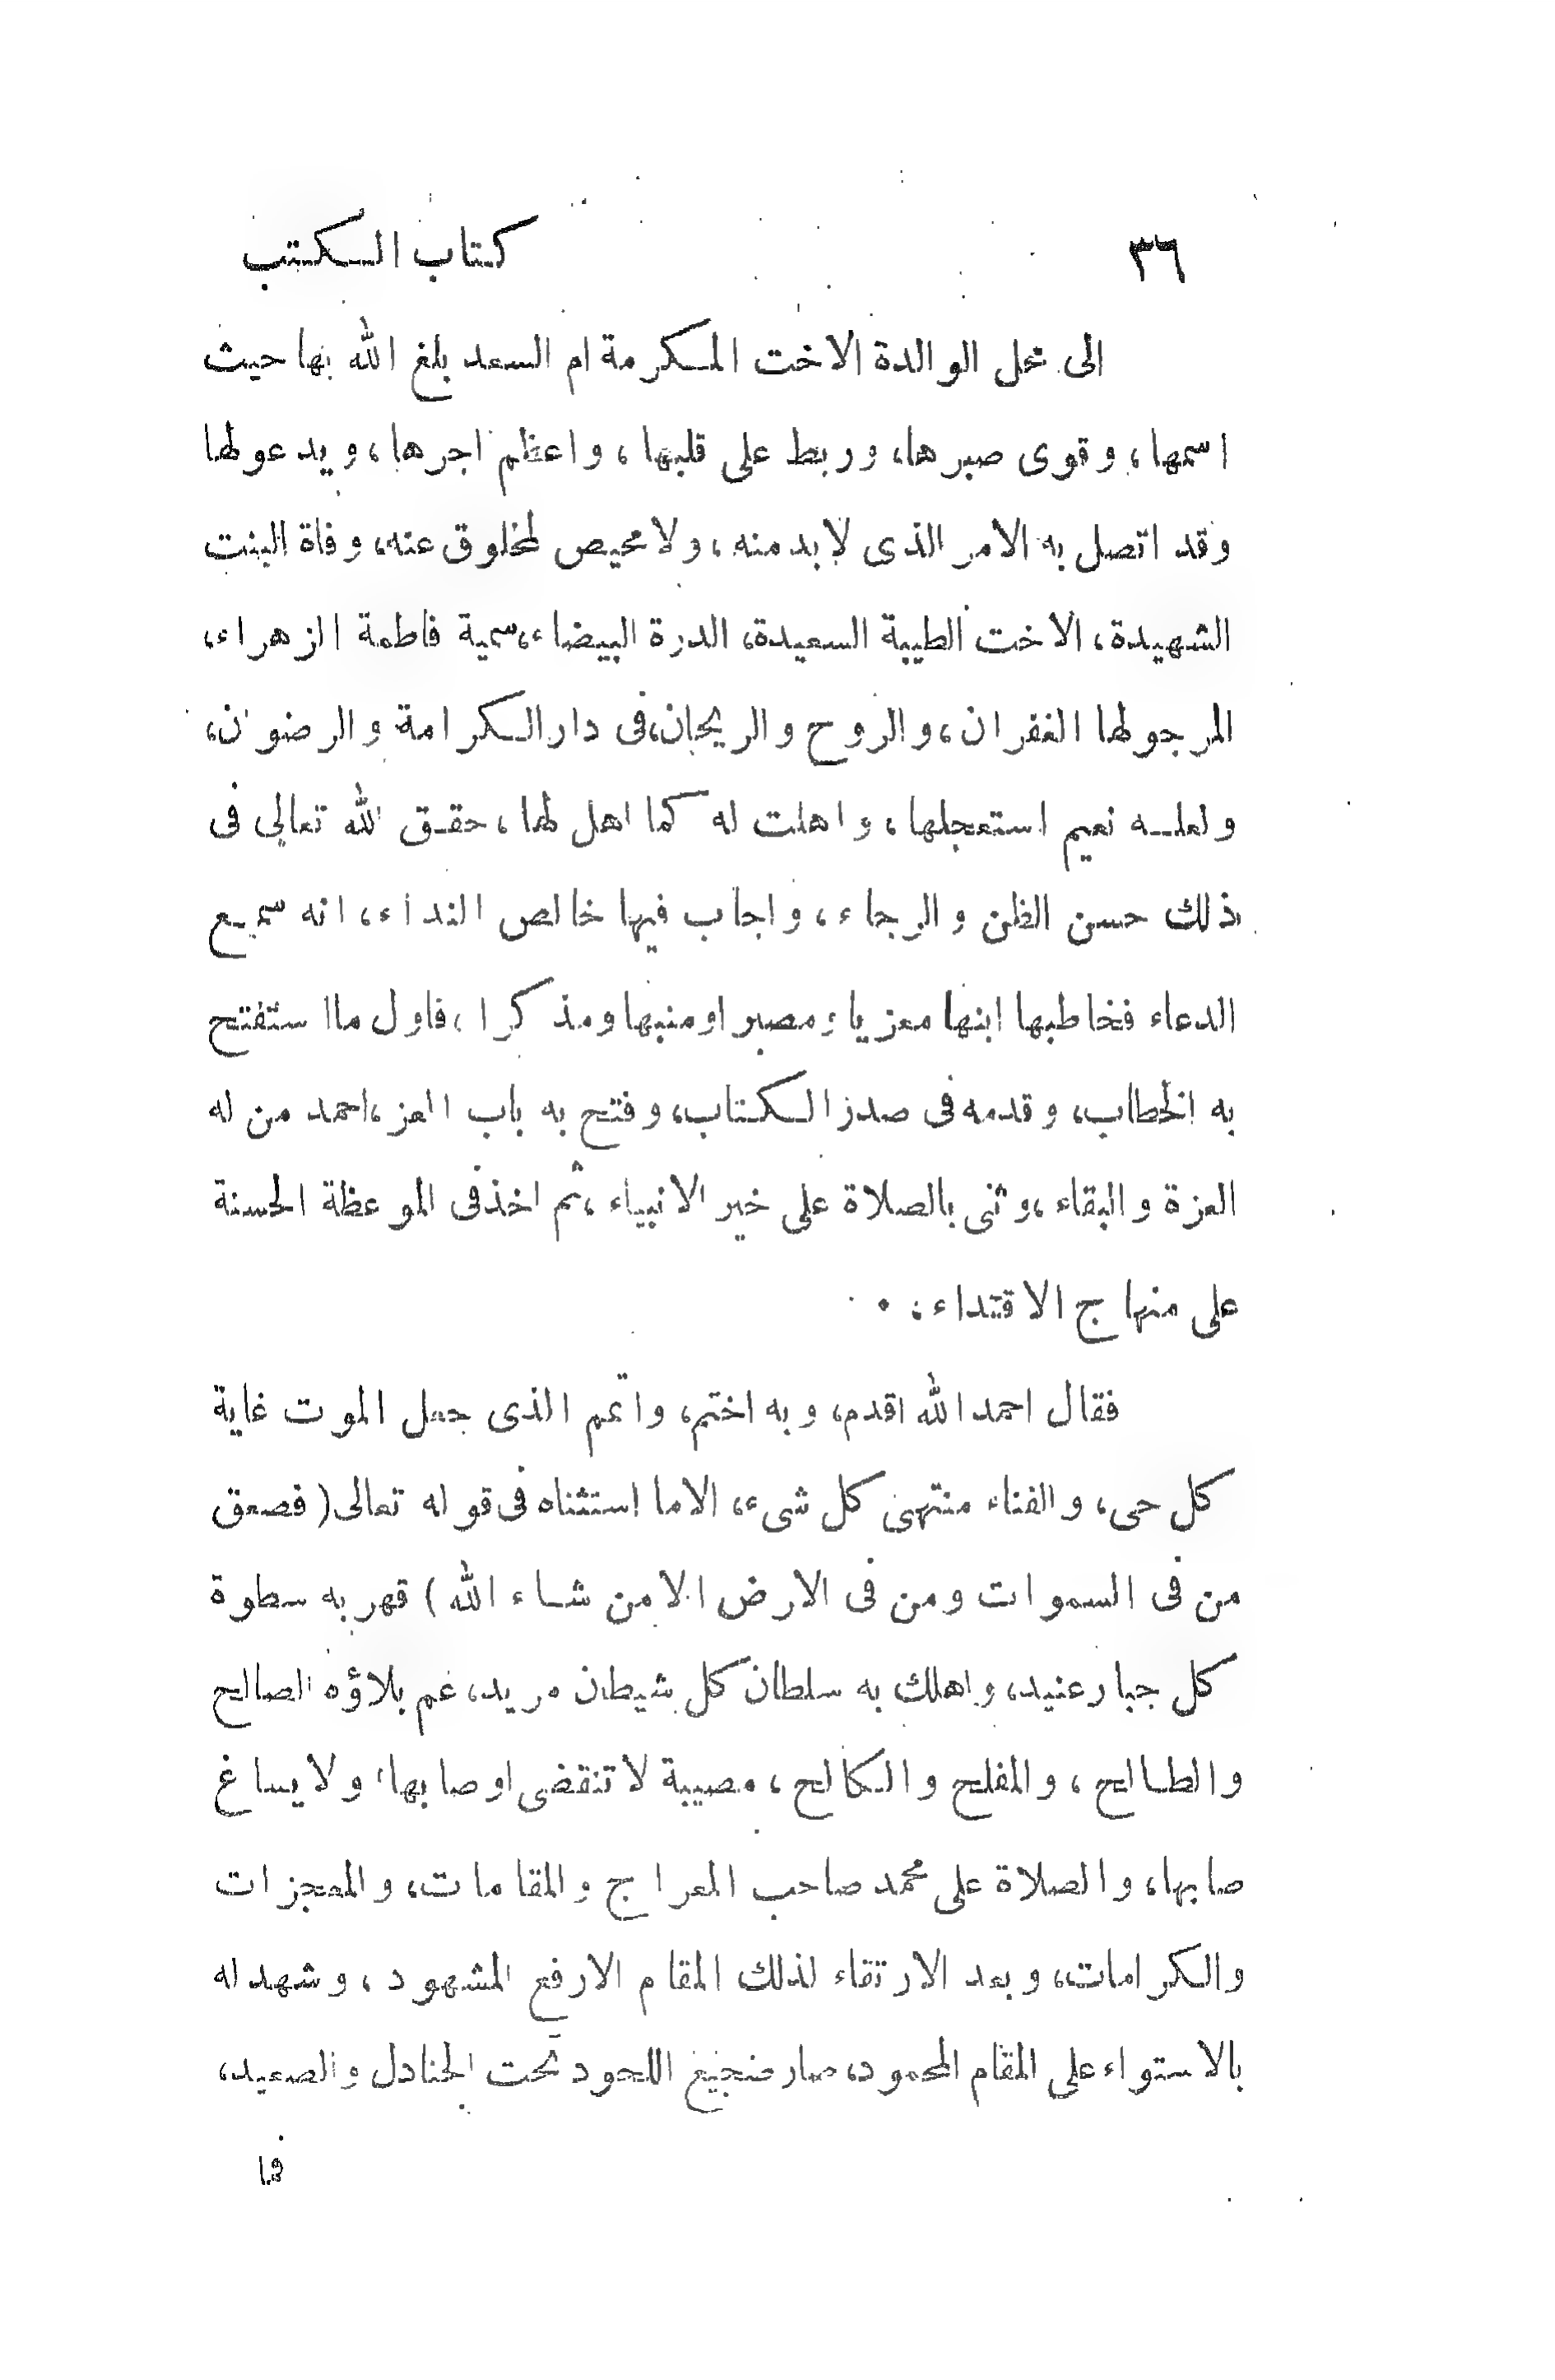 ٣٦ كتاب الكتب
الى محل الوالدة الاخت المكرمة ام السعد بلغ الله بها حيث
اسمها، وقوى صبرها، وربط على قلبها، واعظم اجرها، ويدعولها
وقد اتصل به الامر الذى لابد منه، ولا محيص لمخلوق عنه، وفاة البنت
الشهيدة، الاخت الطيبة السعيدة، الدرة البيضاء، سمية فاطمة الزهراء،
المرجولها الغفران، والروح والريحان، فى دار الكرامة والرضوان،
ولعله نعيم استعجلها، واهلت له كما اهل لها، حقق الله تعالى فى
ذلك حسن الظن والرجاء، واجاب فيها خالص النداء، انه سميع
الدعاء فخاطبها ابنها معزيا ومصبرا ومنبها ومذكرا، فاول ما استفتح
به الخطاب، وقدمه فى صدر الكتاب، وفتح به باب العز، احمد من له
العزة والبقاء، وثنى بالصلاة على خير الانبياء، ثم اخذ فى الموعظة الحسنة
على منهاج الاقتداء، .
فقال احمد الله اقدم، وبه اختم، واتمم الذى جعل الموت غاية
كل حى، والفناء منتهى كل شىء، الا ما استثناه فى قوله تعالى (فصعق
من فى السموات ومن فى الارض الا من شاء الله) قهر به سطوة
كل جبار عنيد، واهلك به سلطان كل شيطان مريد، عم بلاؤه الصالح
والطالح، والمفلح والكالح، مصيبة لا تنقضى اوصابها، ولا يساغ
صابها، والصلاة على محمد صاحب المعراج والمقامات، والمعجزات
والكرامات، وبعد الارتقاء لذلك المقام الارفع المشهود، وشهد له
بالاستواء على المقام المحمود، صار ضجيع اللحود تحت الجنادل والصعيد،
فما